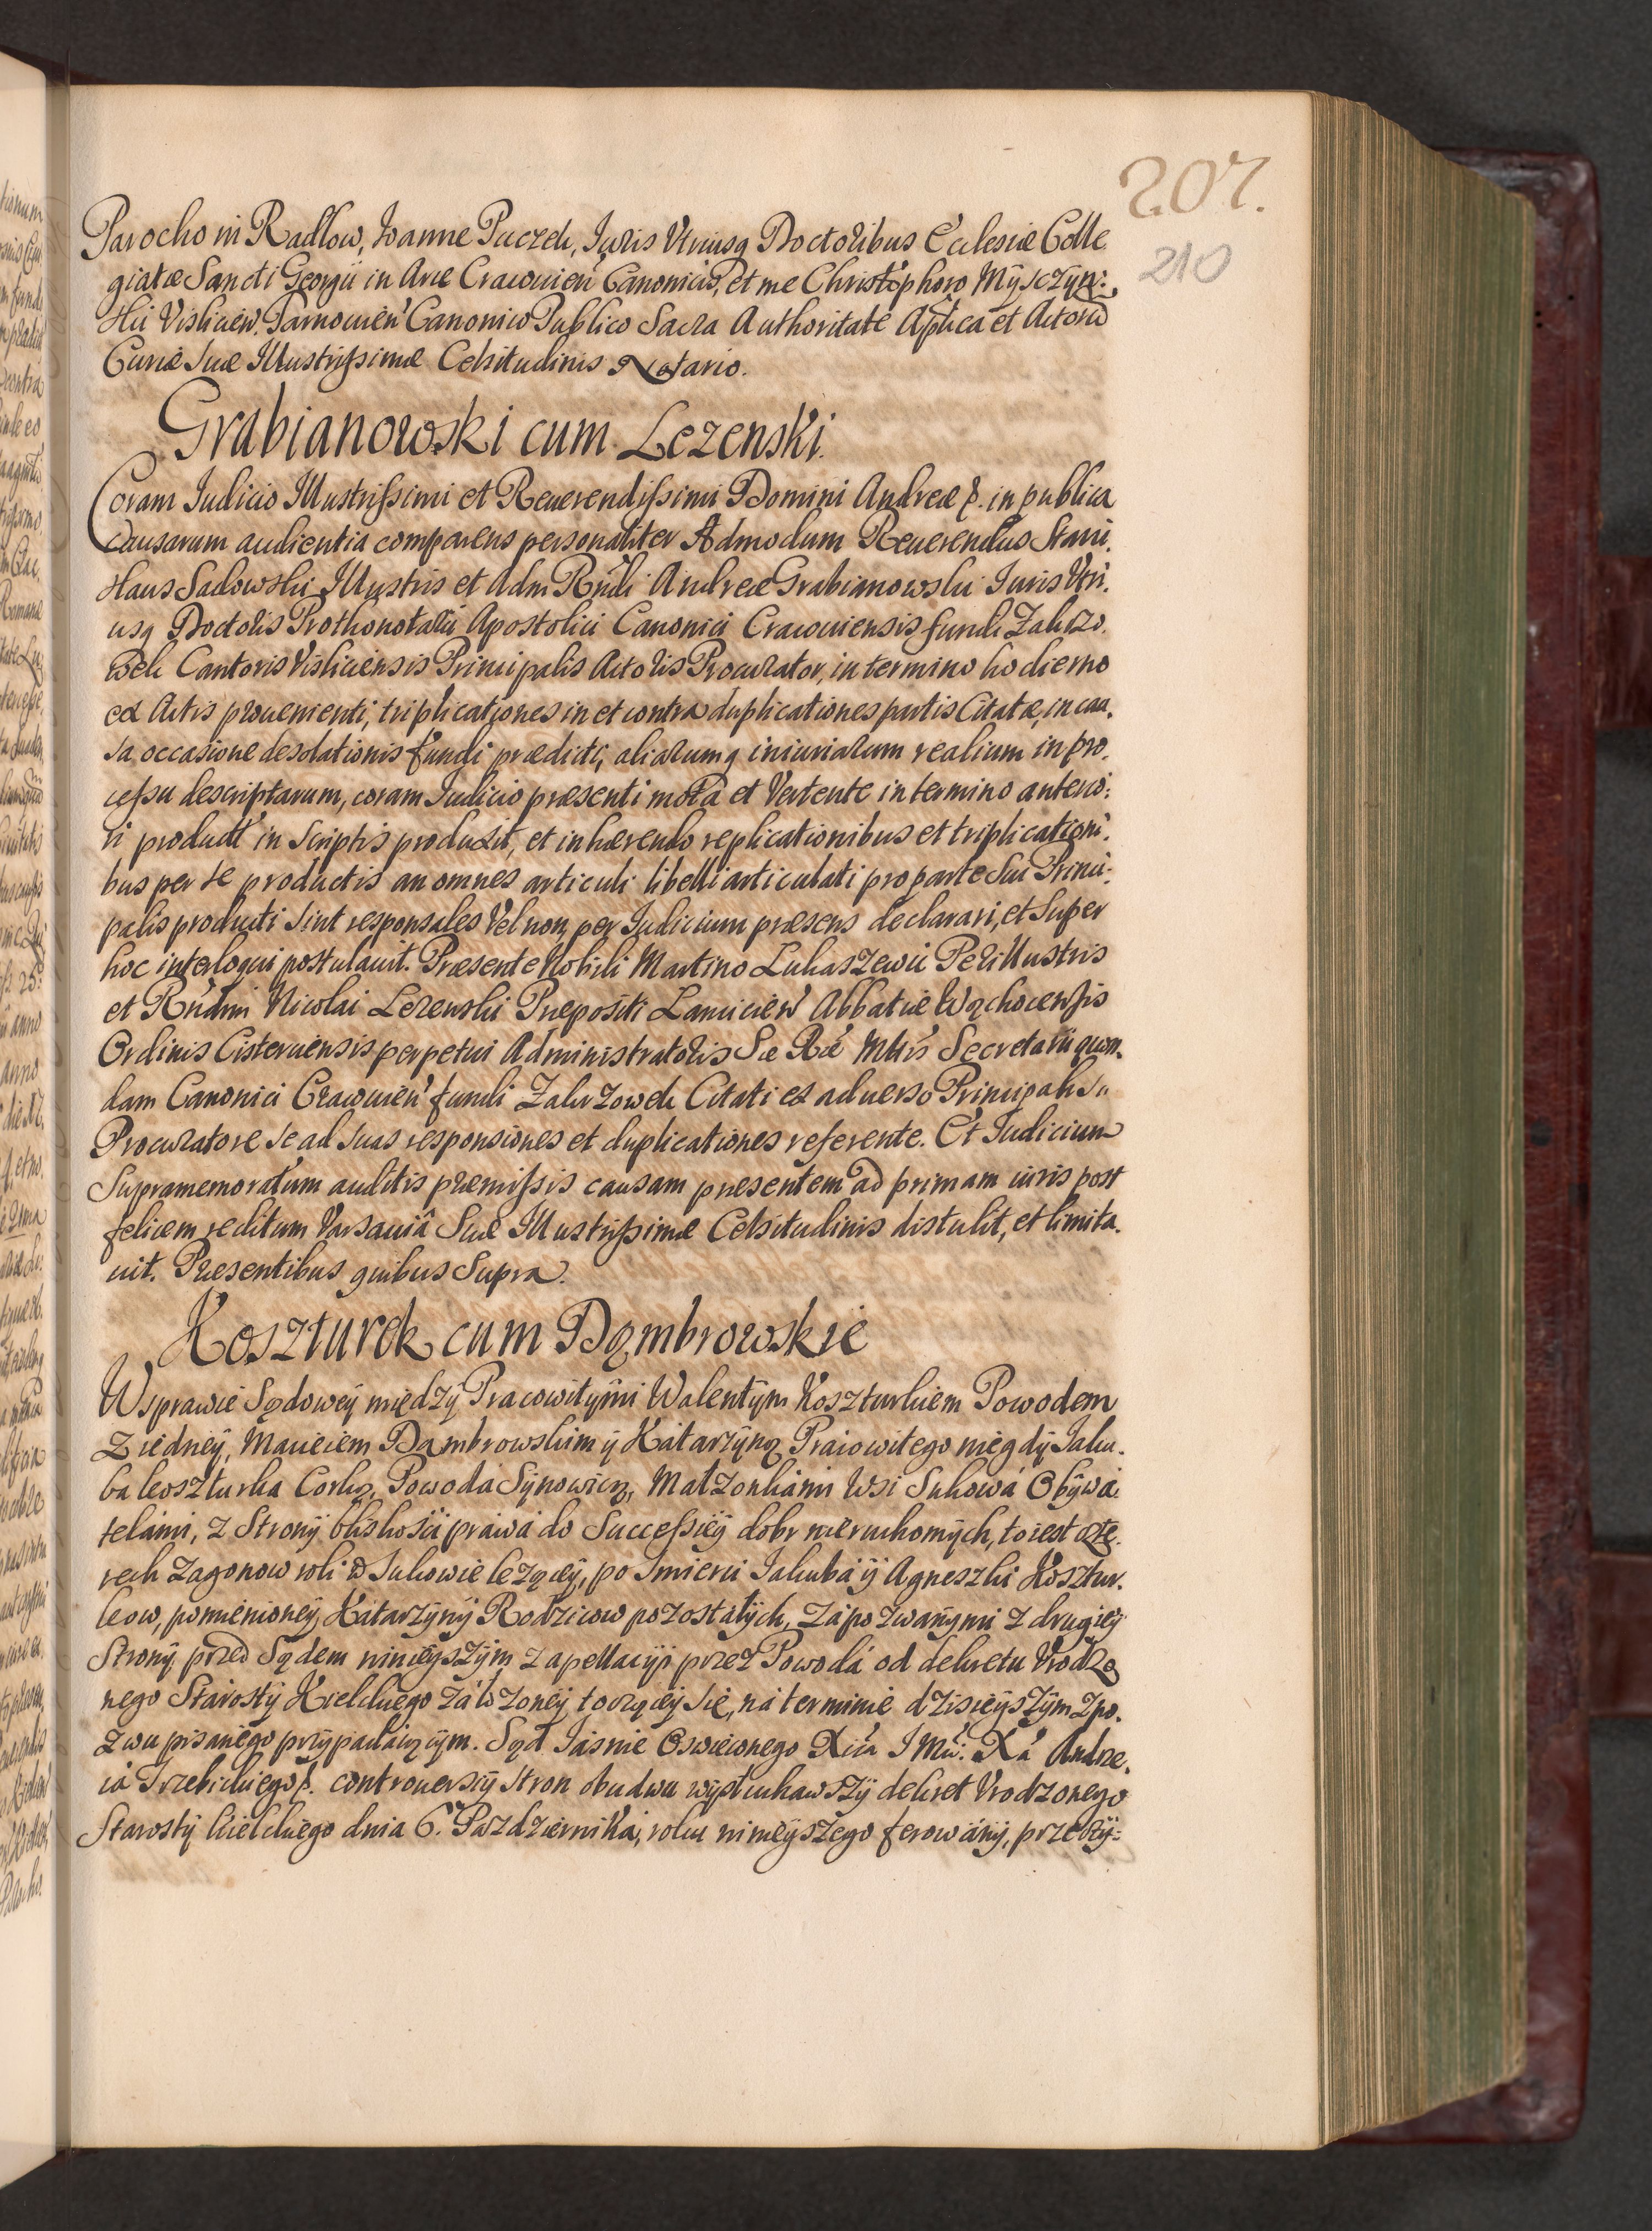 207.
210
Parocho in Radłow, Ioanne Puczek, Iuris Vtriusq Doctoribus Ecclesiæ Colle
giatæ Sancti Georgii in Arce Cracouien Canonicis, et me Christophoro Mÿsczÿn:
skii Visliciен, Tarnouien Canonico Publico Sacra Authoritate Aplica et Actoru
Curiæ Suæ Illustrissimæ Celsitudinis Notario.
Grabianowski cum Lezenski.
Coram Iudicio Illustrissimi et Reuerendissimi Domini Andreæ &. in publica
causarum audientia comparens personaliter Admodum Reuerendus Stani.
slaus Sadowski Illustris et Adm Rndi Andreæ Grabianowski Iuris Vtri.
usq Doctoris Prothonotarii Apostolici Canonici Cracouiensis fundi Zakrzo.
wek Cantoris Visliciensis Principalis Actoris Procurator, in termino hodierno
ex Actis prouenienti, triplicationes in et contra duplicationes partis Citatæ, in cau.
sa occasione desolationis fundi prædicti, aliarumq iniuriarum realium in pro.
cessu descriptarum, coram Iudicio præsenti mota et Vertente in termino anterio:
ri product in Scriptis produxit, et inhærendo replicationibus et triplicationi.
bus per se productis an omnes articuli libelli articulati pro parte Sui Princi:
palis producti sint responsales Vel non, per Iudicium præsens declarari, et Super
hoc interloqui postulauit. Præsente Nobili Martino Lukaszewic Perillustris
et Rndmi Nicolai Lezenski Præpositi Lanicien Abbatiæ Wąchocensis
Ordinis Cisterciensis perpetui Administratoris Sæ Ræ Mttis Secretarii quon.
dam Canonici Cracouien fundi Zakrzowek Citati ex aduerso Principalis
Procuratore se ad suas responsiones et duplicationes referente. Et Iudicium
Supramemoratum auditis præmissis causam præsentem ad primam iuris post
felicem reditum Varsauiâ Suæ Illustrissimæ Celsitudinis distulit, et limita.
uit. Præsentibus quibus Supra.
Koszturek cum Dąmbrowskie
W sprawie Sądoweÿ międzÿ Pracowitÿmi Walentÿm Koszturkiem Powodem
z iedneÿ, Macieiem Dąmbrowskim ÿ Katarzÿną Praiowitego niegdÿ Iaku.
ba koszturka Corką, Powoda Sÿnowicą, Małzonkami Wsi Sukowa Obÿwa.
telami, z Stronÿ bliskosci prawa do Successiÿ dobr nieruchomÿch, to iest czte.
rech zagonow roli w Sukowie lezącÿ, po smierci Iakuba ÿ Agneszki Kosztur.
kow, pomienioneÿ Katarzÿnÿ Rodzicow pozostałÿch, zapozwanÿmi z drugieÿ
Stronÿ przed Sądem ninieÿszÿm z apellacÿi przez Powoda od dekretu Vrodzo
nego Starostÿ Kielckiego załozoneÿ toczącÿ się, na terminie dzisieÿszÿm z po.
zwu pisanego przÿpadaiącÿm. Sąd Iasnie Oswieconego Xcia I Mci. Xa Andrze.
ia Trzebickiego &. controuersiÿ stron obudwu wÿsłuchawszÿ dekret Vrodzonego
Starostÿ kielckiego dnia 6. Pazdziernika, roku ninieÿszego ferowanÿ, przeczÿ: